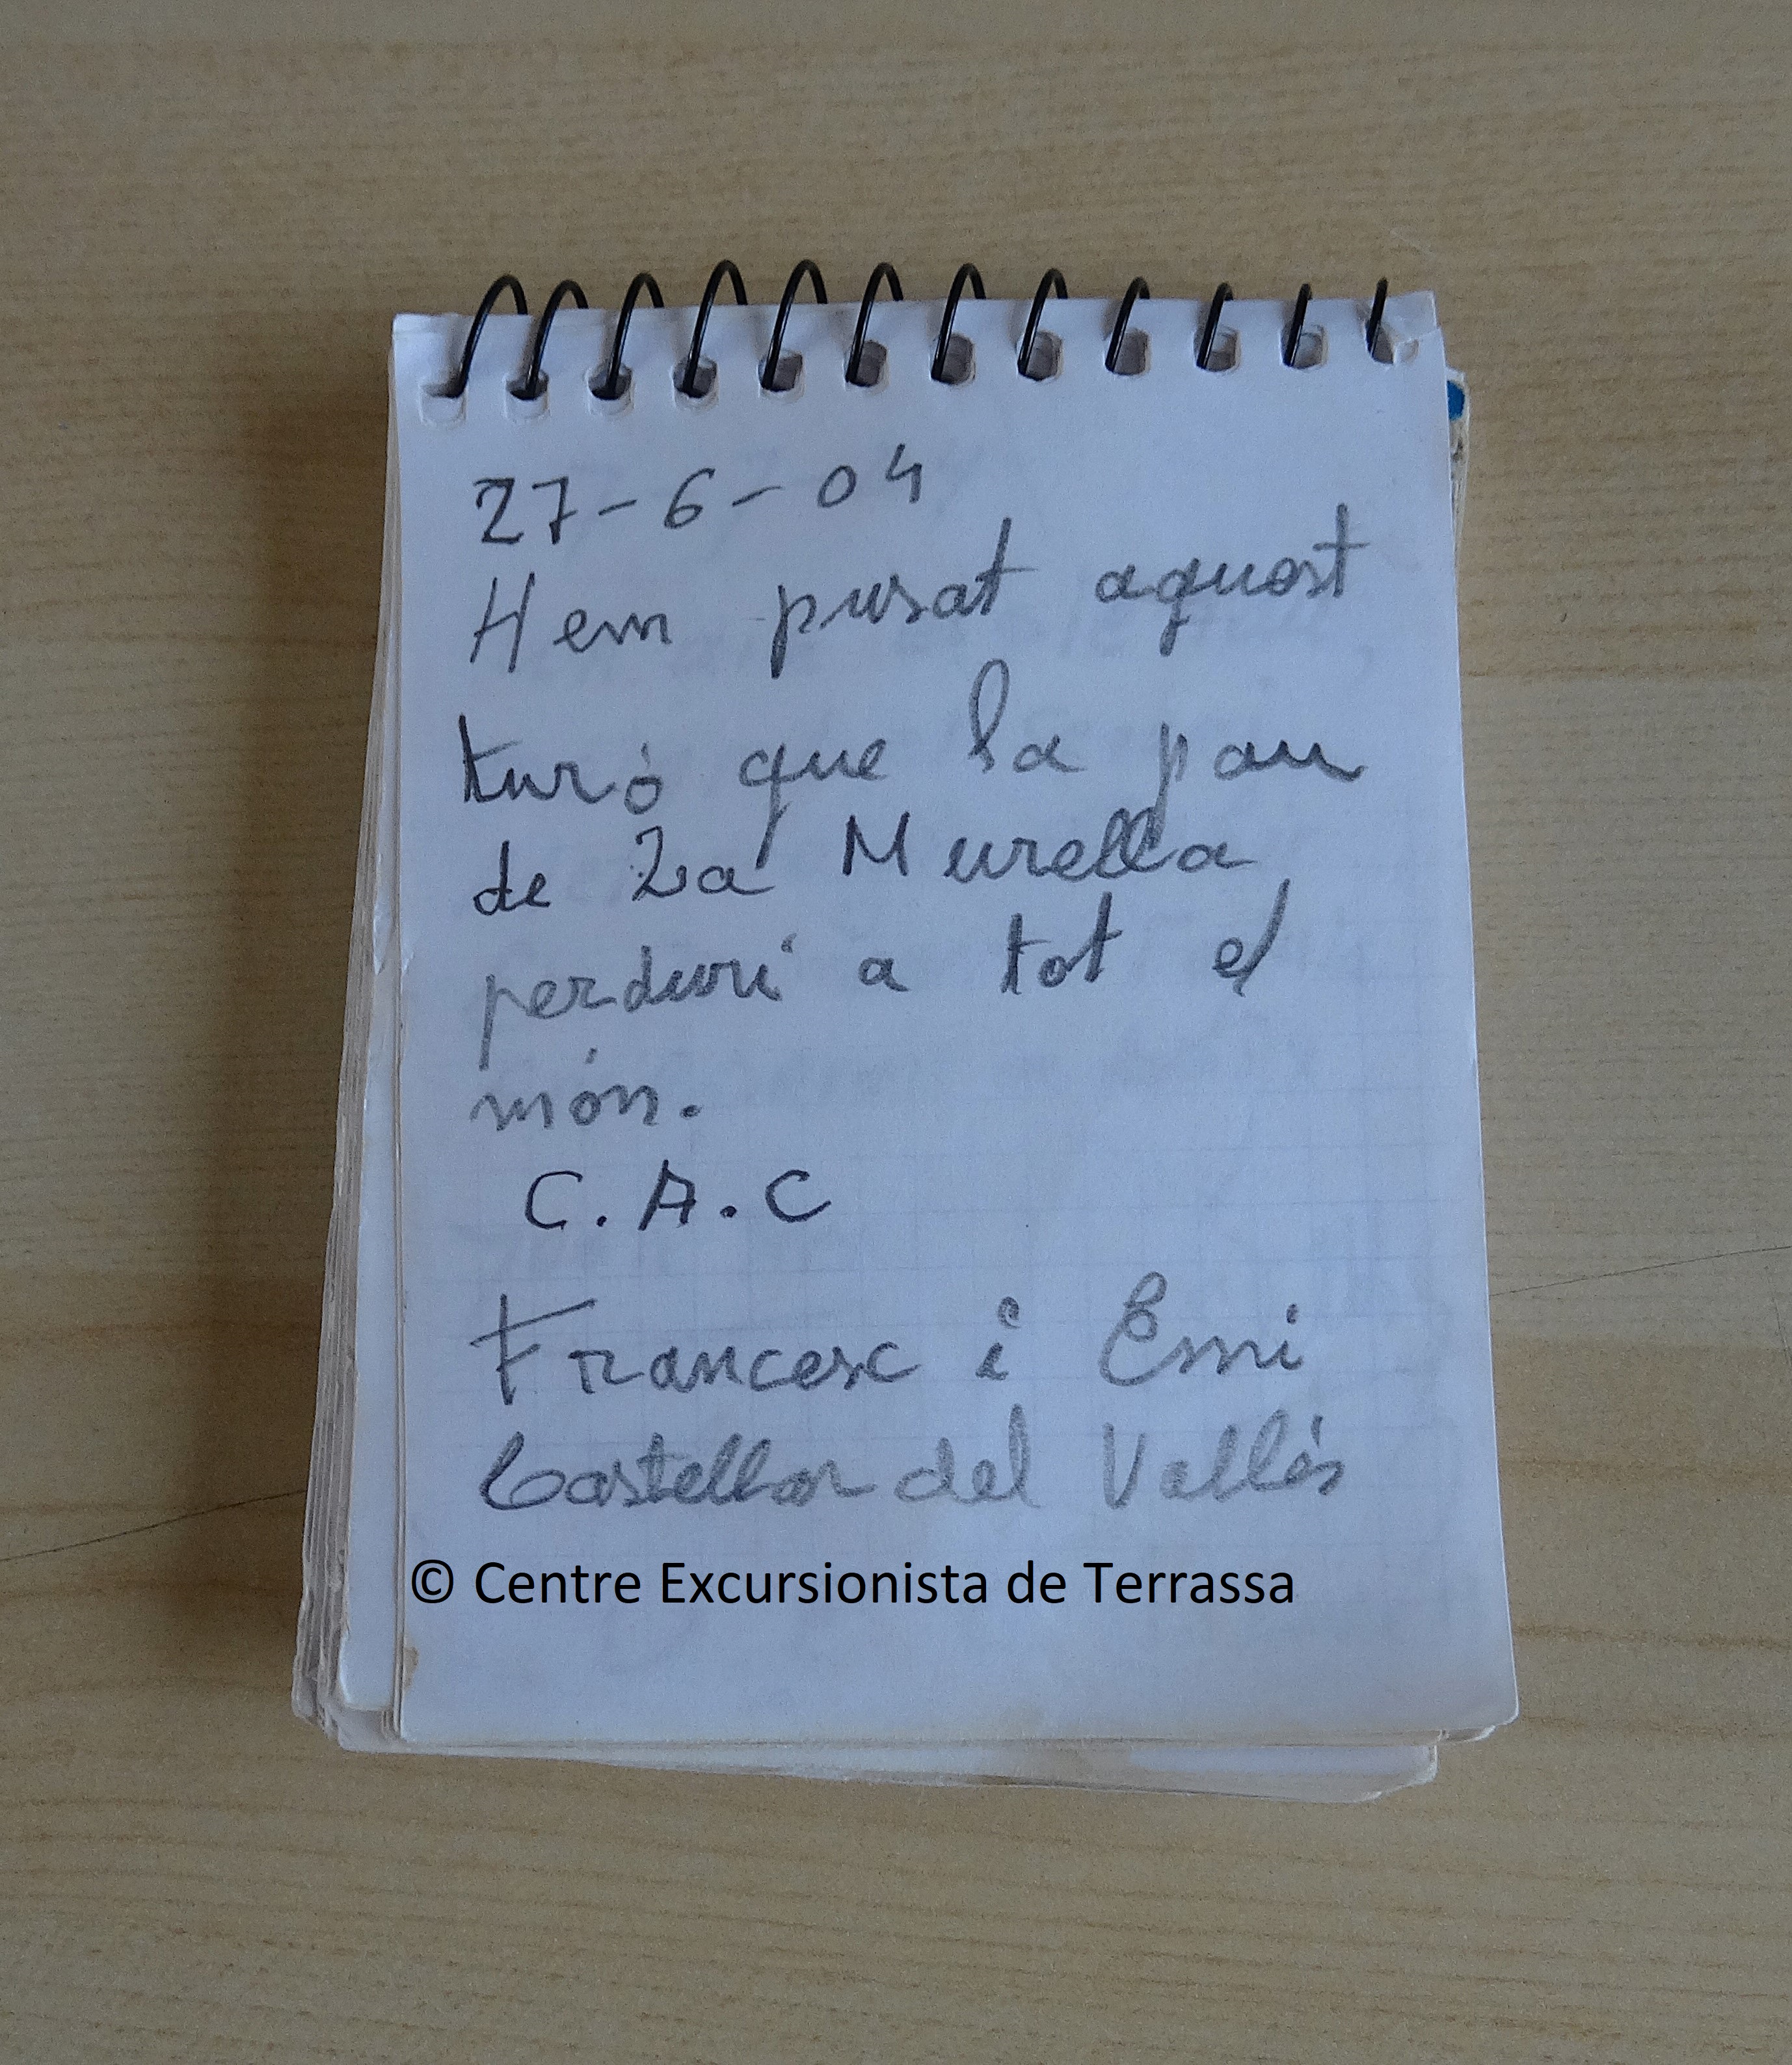 27-6-04
Hem pusat aquest
turó que la pau
de La Murella
perduri a tot el
món.
C.A.C
Francesc i Emi
Castellar del Vallès
© Centre Excursionista de Terrassa